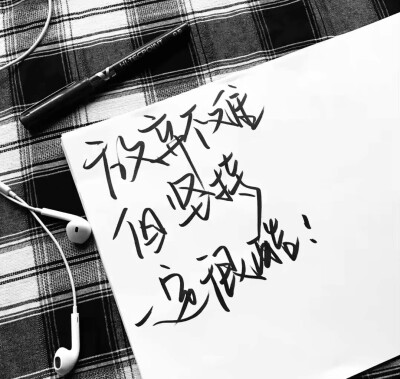 放弃不难
但坚持
一定很酷！